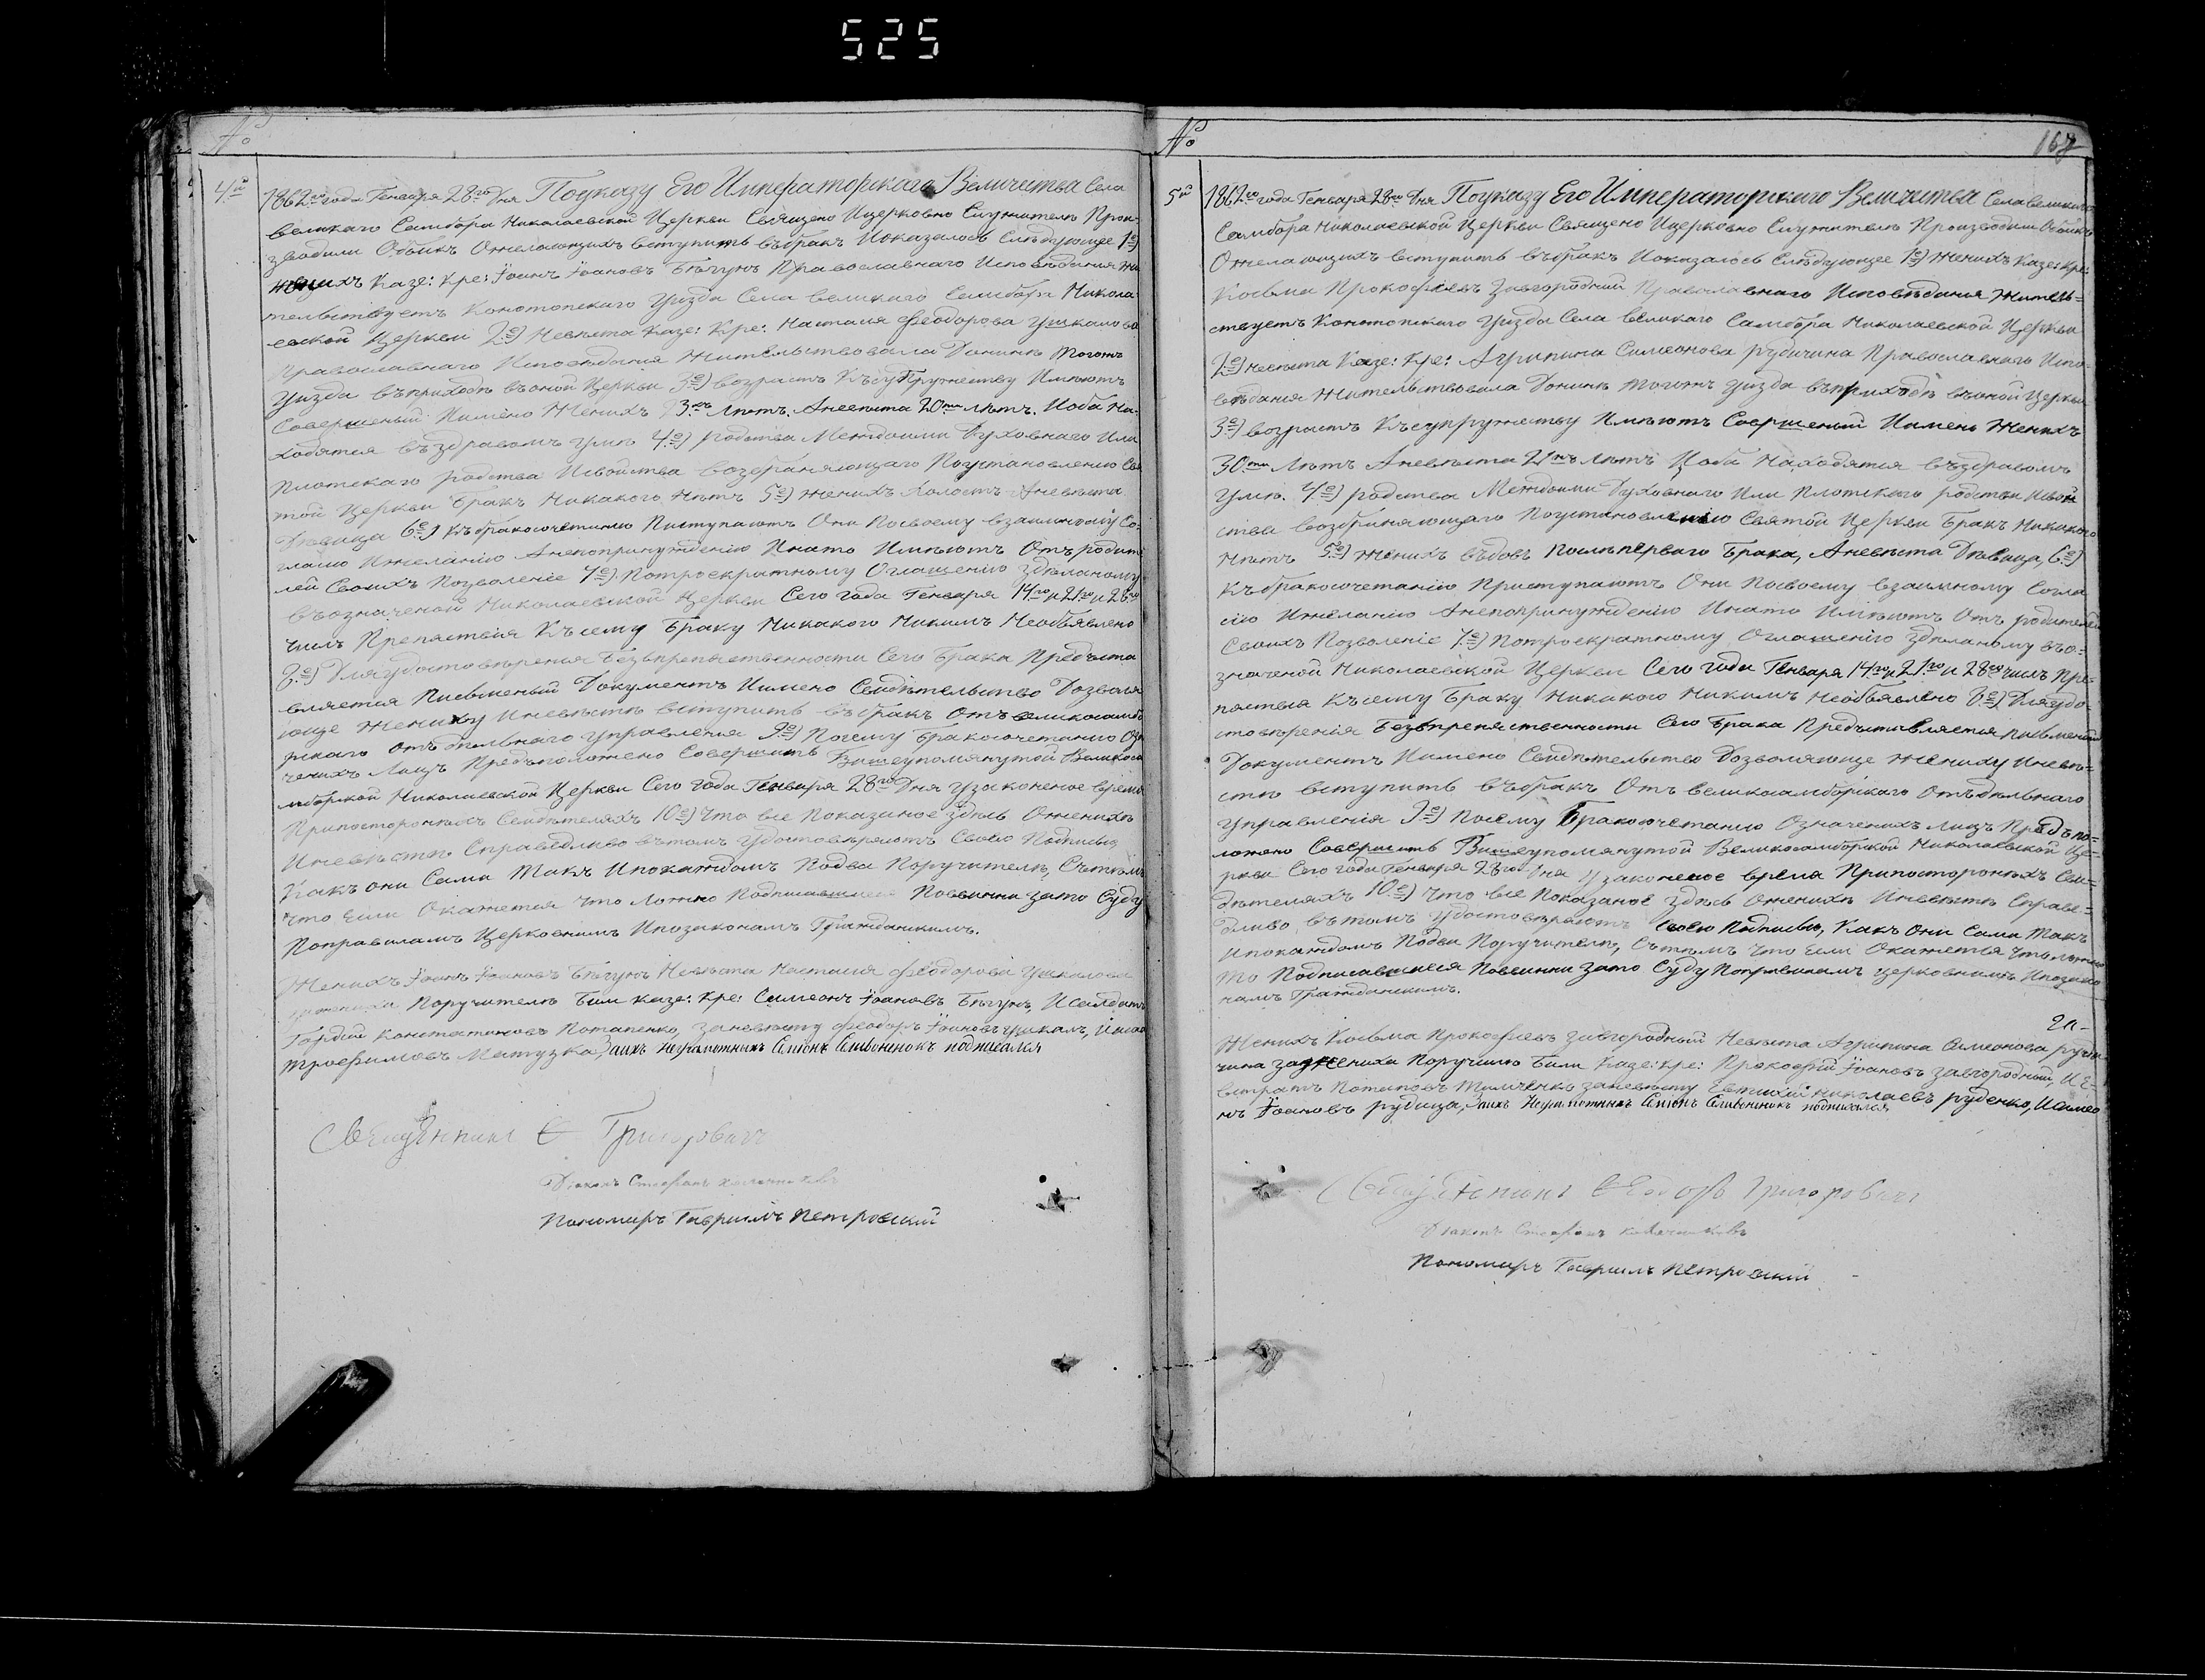 525
№
4й
1862го года Генваря 28го Дня Поуказу Его Императорского Величества Села
великаго Самбора Николаевской Церкви Священо Ицерковно Служители Прои-
зводили Обыск Ожелающихъ вступить въбракъ Иоказалось Следующее 1е)
Женихъ Казе: Кре: Іоанъ Іоановъ Бѣгунъ Православнаго Исповѣдания Жи
тельствуетъ Конотопскаго Уизда Села великаго Самбора Никола
евской Церкви 2е) Невѣста Казе: Кре: Настасия Феодорова Ушкалова
Православнаго Исповѣдания Жительствовала Донинѣ Тогожъ
Уизда въприходѣ въоной Церкви 3е) возрастъ Късупружеству Имѣютъ
Совершеный Имено Женихъ Лѣтъ. Аневѣста 20ти лѣтъ. Иоба На-
ходятся въздравомъ умѣ 4е) родства Междоими Духовнаго Или
Плотскаго родства Исвойства возбраняющаго Поустановлению Свя
той Церкви Бракъ Никакого Нѣтъ 5е) Женихъ Холостъ Аневѣста
Дѣвица 6е) Къбракосочетанию Пиступаютъ Они Посвоему взаимному Со-
гласию Ижеланию Анепопринуждению Инато Имѣютъ Отъ родите
лей Своихъ Позволеніе 7е) Потроекратному Оглашению Здѣланому
въозначеной Николаевской Церкви Сего года Генваря 14го и 21го и 28го
чисъ Препяствія Късему Браку Никакого Никимъ Необявлено
8е) Дляудостовѣрения Безъпрепяственности Сего Брака Предъста
вляется Писменый Документъ Имено Свидѣтельство Дозволя
юще Жениху Иневѣстѣ вступить въбракъ Отъ великосамбо
рскаго отъдѣльнаго Управления 9е) Посему Бракосочетанию Озн
ченихъ Лицъ Предъположено Совершить Вишеупомянутой Великоса
мборской Николаевской Церкви Сего года Генваря 28го Дня Узаконеное время
Припосторонихъ Свидѣтеляхъ 10е) Что все Показаное здѣсь Оженихѣ
Иневѣстѣ Справедливо вътомъ Удостовѣряютъ Своею Подписью
Какъ они Сами Такъ Ипокаждомъ Подва Поручителѣ, Стѣмъ
что Если Окажется что ложно Подписавшиеся Повинни зато Суду
Поправиламъ Церковнимъ Ипозаконамъ Гражданскимъ.
Женихъ Іоанъ Іоановъ Бѣгунъ Невѣста Настасия Феодорова Ушкалова
Поручителѣ Били казе: Кре: Симеонъ Іоановъ Бѣгунъ, Исалдатъ
Гордий Константиновъ Потапенко, Заневѣсту Феодоръ Іоановъ Ушкалъ,
Трофимовъ Матузка, Заихъ Неграмотныхъ Семіонъ Сливоненокъ подписался
Священникъ Ѳ Григоровичъ
Діаконъ Стефанъ
Пономаръ Гавриилъ Петровский
№
167
5й
1862го года Генваря 28го Дня Поуказу Его Императорского Величества Села великаго
Самбора Николаевской Церкви Священо Ицерковно Служители Производили Обыскъ
Ожелающихъ вступить въбракъ Иоказалось Следующее 1е) Женихъ Казе: Кре:
Косьма Прокофиевъ Завгородний Православнаго Исповѣдания Житель-
ствуетъ Конотопскаго Уизда Села великаго Самбора Николаевской Церкви
2е) Невѣста Казе: Кре: Агрипина Симеонова рудичина Православнаго Испо-
вѣдания Жительствовала Донинѣ Тогожъ Уизда въприходѣ въоной Церкви
3е) возрастъ Късупружеству Имѣютъ Совершеный Имено Женихъ
30ти Лѣтъ Аневѣста лѣтъ Иоба Находятся въздравомъ
Умѣ. 4е) родства Междоими Духовнаго Или Плотскаго родства Исвой
ства возбраняющаго Поустановлению Святой Церкви Бракъ Никакого
Нѣтъ 5е) Женихъ въдовъ Послѣпервого Брака, Аневѣста Дѣвица, 6е)
Къбракосочетанию Приступаютъ Они Посвоему взаимному Согла
сію Ижеланію Анепопринуждению Инато Имѣютъ Отъ родителей
Своихъ Позволеніе 7е) Потроекратному Оглашению здѣланому въо-
значеной Николаевской Церкви Сего года Генваря 14го и 21го и 28го чисъ Пре-
пяствия Късему Браку Никакого Никимъ Необявлено 8е) Дляудо-
стовѣренія Безъпрепяственности Сего Брака Предъставляется писмений
Документъ Имено Свидѣтельство Дозволяюще Жениху Иневѣ-
стѣ вступить въбракъ Отъ великосамборскаго Отъдѣльнаго
Управленія 9е) Посему Бракосочетанию Означенихъ лицъ Предъпо-
ложено Совершить Вишеупомянутой Великосамборской Николаевской Це-
ркви Сего года Генваря 28го Дня Узаконеное время Припосторонихъ Сви-
дѣтеляхъ 10е) Что все Показаное здѣсь Оженихѣ Иневѣстѣ Справе-
дливо вътомъ Удостовѣряютъ Своею Подписью, Какъ Они Сами Такъ
Ипокаждомъ Подва Поручителѣ, Стѣмъ что Если Окажется что ложно
то Подписавшиеся Повинни зато Суду Поправиламъ церковнимъ Ипозако
намъ Гражданскимъ.
Женихъ Косьма Прокофиевъ Завгородний Невѣста Агрипина Симеонова руди
чина зажениха Поручителѣ Били Казе: кре: Прокофий Іоановъ Завгородний, ИЕ-
встратъ Потаповъ Тимченко, заневѣсту Евтихий Николаевъ руденко, Исимео
нъ Іоановъ рудица, Заихъ Неграмотныхъ Семіонъ Сливоненокъ подписался
Священникъ Ѳеодоръ Григоровичъ
Діаконъ Стефанъ
Пономаръ Гавриилъ Петровский